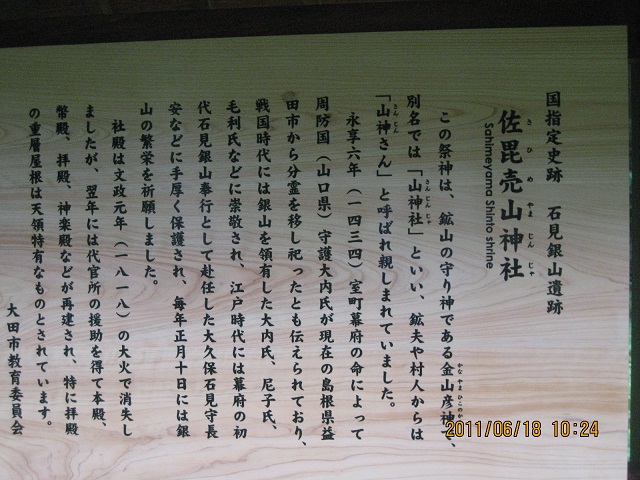 国指定史跡　石見銀山遺跡
佐毘売山神社
さひめやまじんじゃ
Sahimeyama Shinto shrine
この祭神は、鉱山の守り神である金山彦神で、
かなやまひこのかみ
別名では「山神社」といい、鉱夫や村人からは
さんじんじゃ
「山神さん」と呼ばれ親しまれていました。
さんじん
永享六年（一四三四）室町幕府の命によって
周防国（山口県）守護大内氏が現在の島根県益
田市から分霊を移し祀ったとも伝えられており、
戦国時代には銀山を領有した大内氏、尼子氏、
毛利氏などに崇敬され、江戸時代には幕府の初
代石見銀山奉行として赴任した大久保石見守長
安などに手厚く保護され、毎年正月十日には銀
山の繁栄を祈願しました。
社殿は文政元年（一八一八）の大火で消失し
ましたが、翌年には代官所の援助を得て本殿、
幣殿、拝殿、神楽殿などが再建され、特に拝殿
の重層屋根は天領特有なものとされています。
大田市教育委員会
2011/06/18 10:24